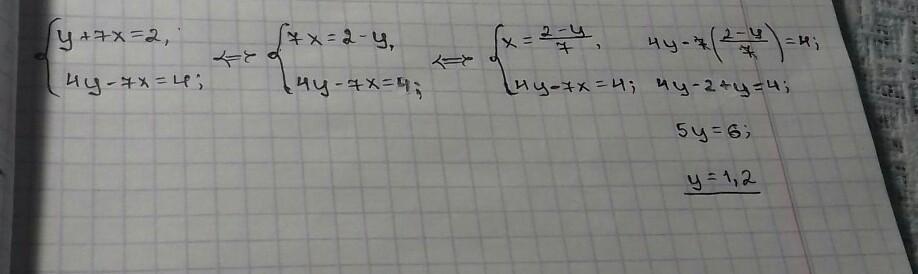 { y+7x=2, 4y-7x=4; ⇔ { 7x=2-y, 4y-7x=4; ⇔ { x=\frac{2-y}{7}, 4y-7x=4;
4y-7(\frac{2-y}{7})=4;
4y-2+y=4;
5y=6;
y=1,2